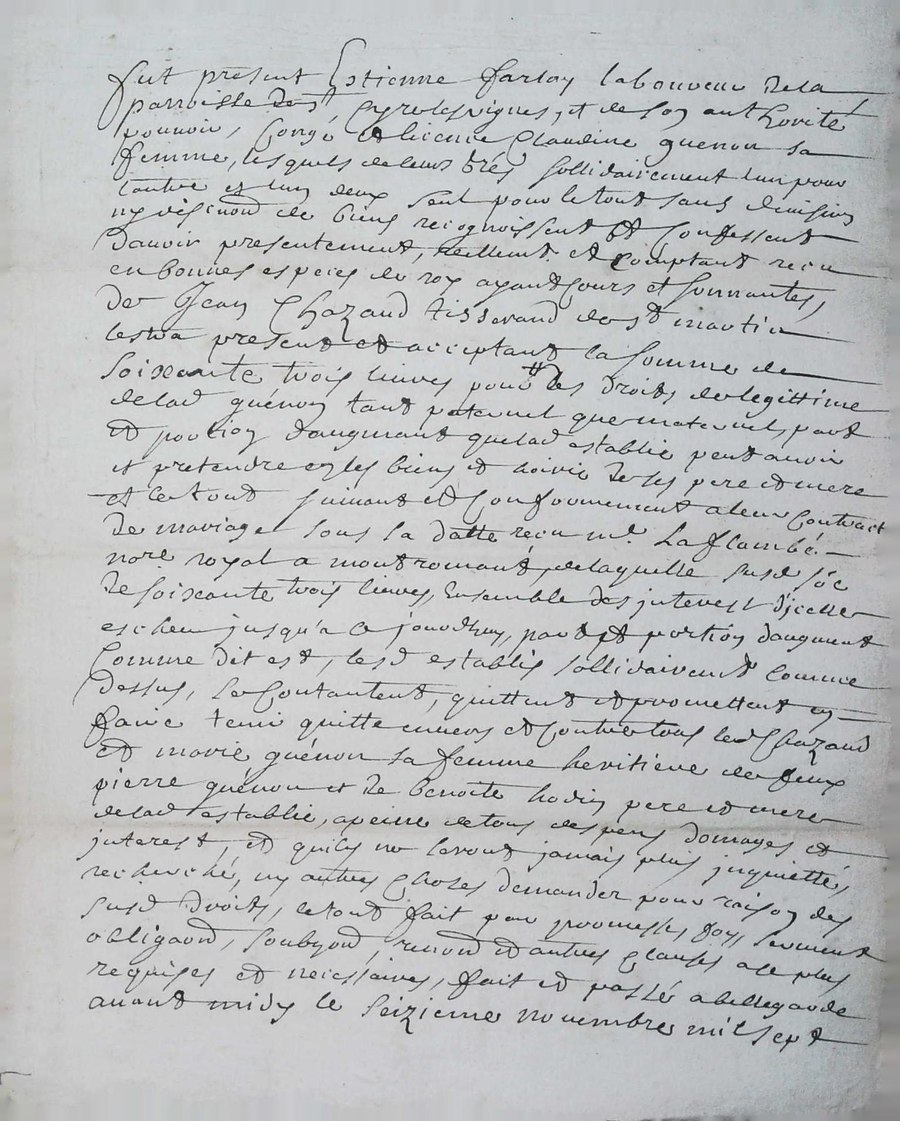 fut present Estienne farlay laboureur dela
parroisse de st Cyrolesvignes, et de soy authorité
pouvoir, Congé et licence Claudine guenon sa
femme, lesquels de leurs grés sollidairement lun pour
lautre et lun deux seul pour letout sans division
ny discuon de biens recognoissent et Confessent
davoir presentement, reellement et Comptant receu
en bonnes especes de roy ayant Cours et sonnantes,
de Jean Chazaud tisserand de st martin
lestra present et acceptant la somme de
soixante trois livres pour tt les droits de legittime
delad guénon tant paternel que maternel, part
et portion daugmant quelad establie peut avoir
et pretendre es les biens et hoirie de ses pere et mere
et letout suivant et Conformement a leur Contract
de mariage sous sa datte receu me La flambé
nore royal a montromant, delaquelle susd sôe
de soixante trois livres, Ensemble des interest dicelle
escheu jusqu'a Ce jourdhuy, part et portion daugment
Comme dit est, lesd establis sollidairemt Comme
dessus, se Contantent, quittent et promettent en
faire tenir quitte envers et Contre tous led Chazaud
et marie guénon sa femme heritiere de feux
pierre guénon et de benoite hodin pere et mere
delad establie, apeine de tous despens domages et
interest, et quils ne seront jamais plus inquiettés,
recherché, ny autres Choses demander pour raison des
susd droits, letout fait par promesses foy, serment
obligaon, soubzon, renond et autres Clauses ace plus
requises et necessaires, fait et passé a bellegarde
avant midy le seizieme novembre mil sept